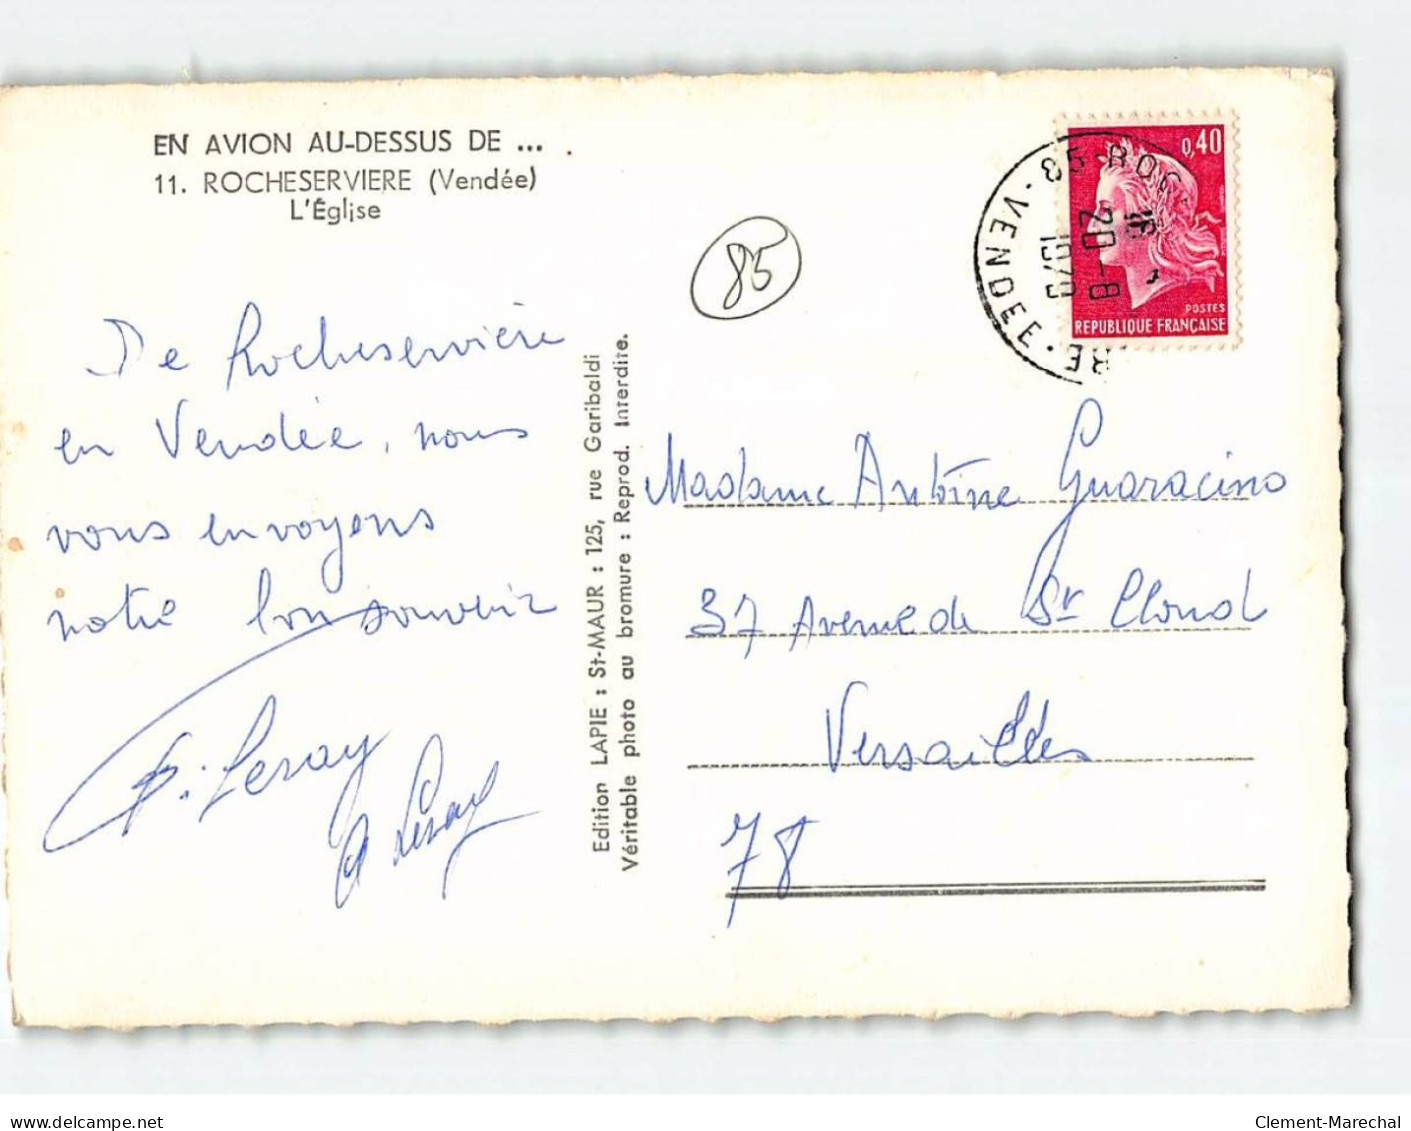 EN AVION AU-DESSUS DE ...
11. ROCHESERVIERE (Vendée)
L'Église
85
De Rocheservière
en Vendée, nous
vous envoyons
notre bon souvenir
P. Leray
A Leray
Edition LAPIE : St-MAUR : 125, rue Garibaldi
Véritable photo au bromure : Reprod. Interdite.
0,40
POSTES
REPUBLIQUE FRANÇAISE
85-ROC
RE
VENDEE
20-8
Madame Antoine Guaracino
37 Avenue de St Cloud
Versailles
78
www.delcampe.net
Clement-Marechal